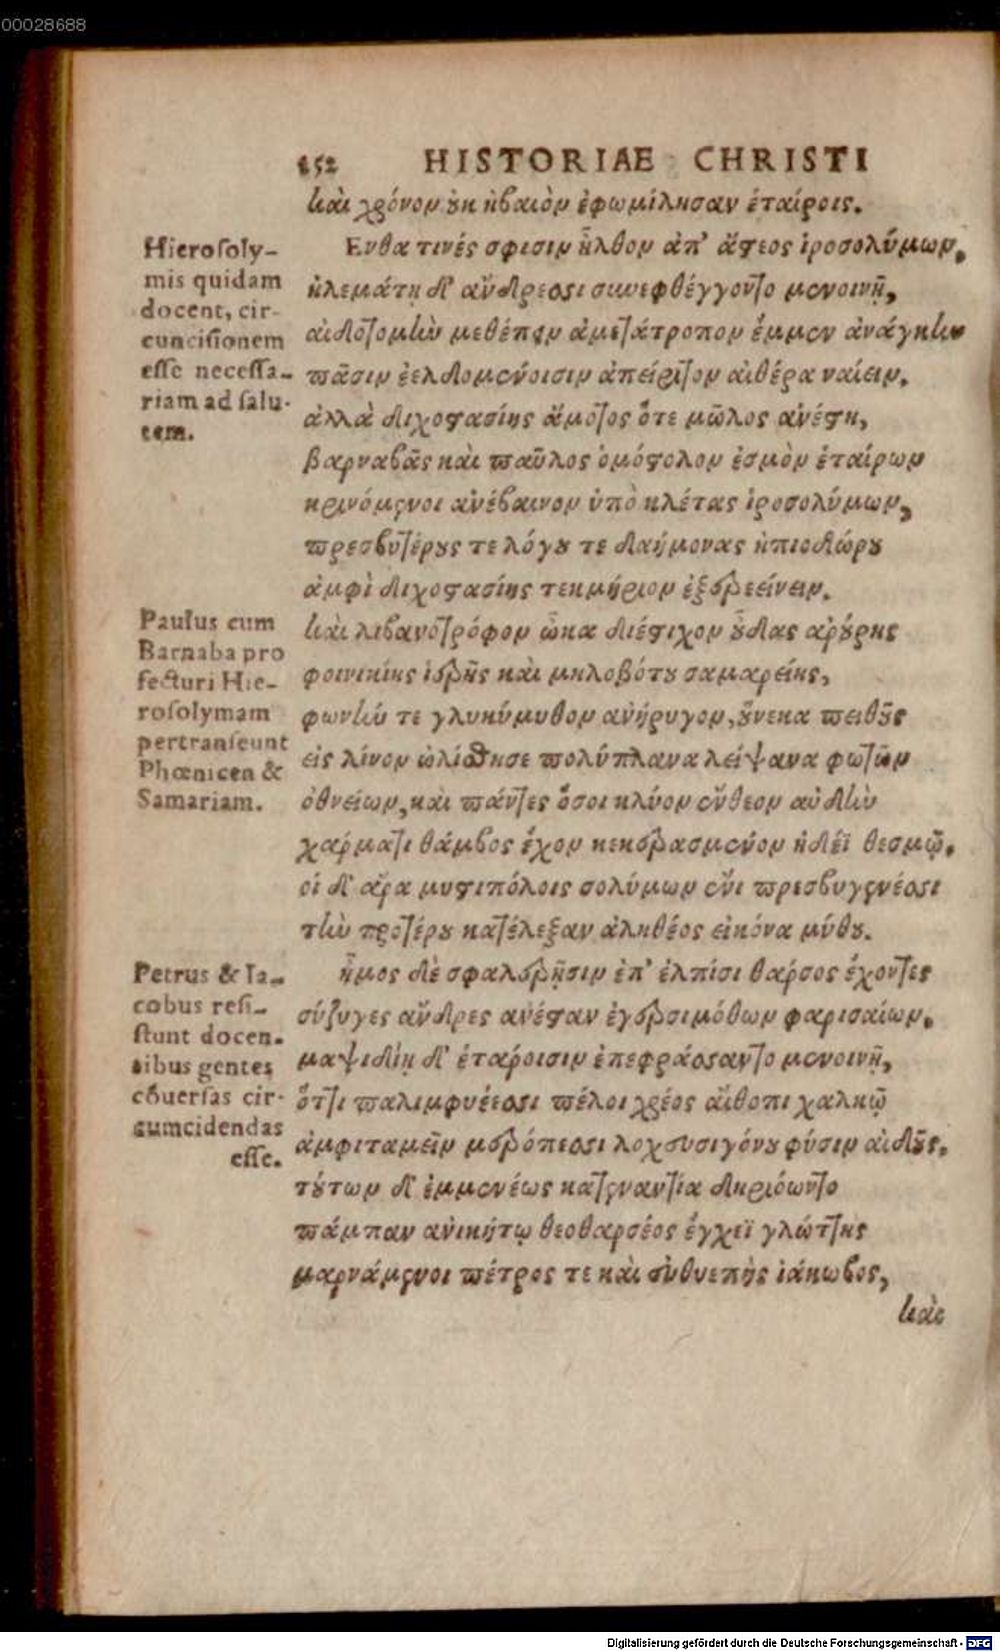 00028688
252 HISTORIAE CHRISTI
καὶ χρόνον οὐκ ἠβαιὸν ἐφωμίλησαν ἑταίροις.
Hierosoly-
mis quidam
docent, cir-
cuncisionem
esse necessa-
riam ad salu-
tem.
Ενθα τινές σφισιν ἦλθον ἀπ' ἄστεος ἱροσολύμων,
ἠλεμάτῃ δ' ἄνδρεσσι συνεφθέγγοντο μενοινῇ,
αἰδοτομὴν μεθέπειν ἀμετάτροπον ἔμμεν ἀνάγκην
πᾶσιν ἐελδομένοισιν ἀπείριτον αἰθέρα ναίειν.
ἀλλὰ διχοστασίης ἄμοτος ὅτε μῶλος ἀνέστη,
βαρναβᾶς καὶ παῦλος ὁμόστολον ἑσμὸν ἑταίρων
κρινόμενοι ἀνέβαινον ὑπὸ κλέτας ἱροσολύμων,
πρεσβυτέρους τε λόγου τε δαήμονας ἠπιοδώρου
ἀμφὶ διχοστασίης τεκμήριον ἐξερεείνειν.
Paulus cum
Barnaba pro
fecturi Hie-
rosolymam
pertranseunt
Phœnicen &
Samariam.
καὶ λιβανοτρόφον ὦκα διέστιχον οὖδας ἀρούρης
φοινικίης ἱερῆς καὶ μηλοβότου σαμαρείης,
φωνήν τε γλυκύμυθον ἀνήρυγον, οὕνεκα πειθοῦς
εἰς λίνον ὠλίσθησε πολύπλανα λείψανα φωτῶν
ὀθνείων, καὶ πάντες ὅσοι κλύον ἔνθεον αὐδὴν
χάρματι θάμβος ἔχον κεκερασμένον ἡδέϊ θεσμῷ.
οἱ δ' ἄρα μυστιπόλοις σολύμων ἐνὶ πρεσβυγενέσσι
τὴν προτέρου κατέλεξαν ἀληθέος εἰκόνα μύθου.
Petrus & Ia-
cobus resi-
stunt docen-
tibus gentes
cōuersas cir-
cumcidendas
esse.
ἦμος δὲ σφαλερῇσιν ἐπ' ἐλπίσι θάρσος ἔχοντες
σύζυγες ἄνδρες ἀνέσταν ἐγερσιμόθων φαρισαίων,
μαψιδίῃ δ' ἑτάροισιν ἐπεφράσσαντο μενοινῇ,
ὅττι παλιμφυέεσσι πέλοι χρέος αἴθοπι χαλκῷ
ἀμφιταμεῖν μερόπεσσι λοχευσιγόνου φύσιν αἰδοῦς.
τούτων δ' ἐμμενέως κατεναντία δηριόωντο
πάμπαν ἀνικήτῳ θεοθαρσέος ἔγχεϊ γλώττης
μαρνάμενοι πέτρος τε καὶ εὐθυεπὴς ἰάκωβος,
καὶ
Digitalisierung gefördert durch die Deutsche Forschungsgemeinschaft - DFG